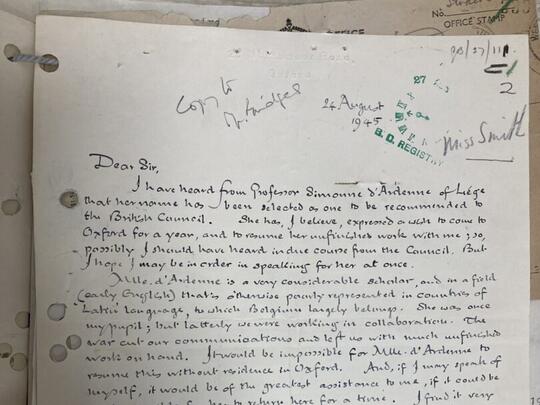 OFFICE STAMP
2
Copy to
Mr. Bridges
24 August
1945
27
B.D. REGISTRY
Miss Smith
Dear Sir,
I have heard from Professor Simonne d'Ardenne of Liége
that her name has been selected as one to be recommended to
the British Council. She has, I believe, expressed a wish to come to
Oxford for a year, and to resume her unfinished work with me; so,
possibly I should have heard in due course from the Council. But
I hope I may be in order in speaking for her at once.
Mlle. d'Ardenne is a very considerable scholar, and in a field
(early English) that's otherwise poorly represented in countries of
Latin language, to which Belgium largely belongs. She was once
my pupil; but latterly we were working in collaboration. The
war cut our communications and left us with much unfinished
work on hand. It would be impossible for Mlle. d'Ardenne to
resume this without residence in Oxford. And, if I may speak of
myself, it would be of the greatest assistance to me, if it could be
for her to return here for a time. I find it very